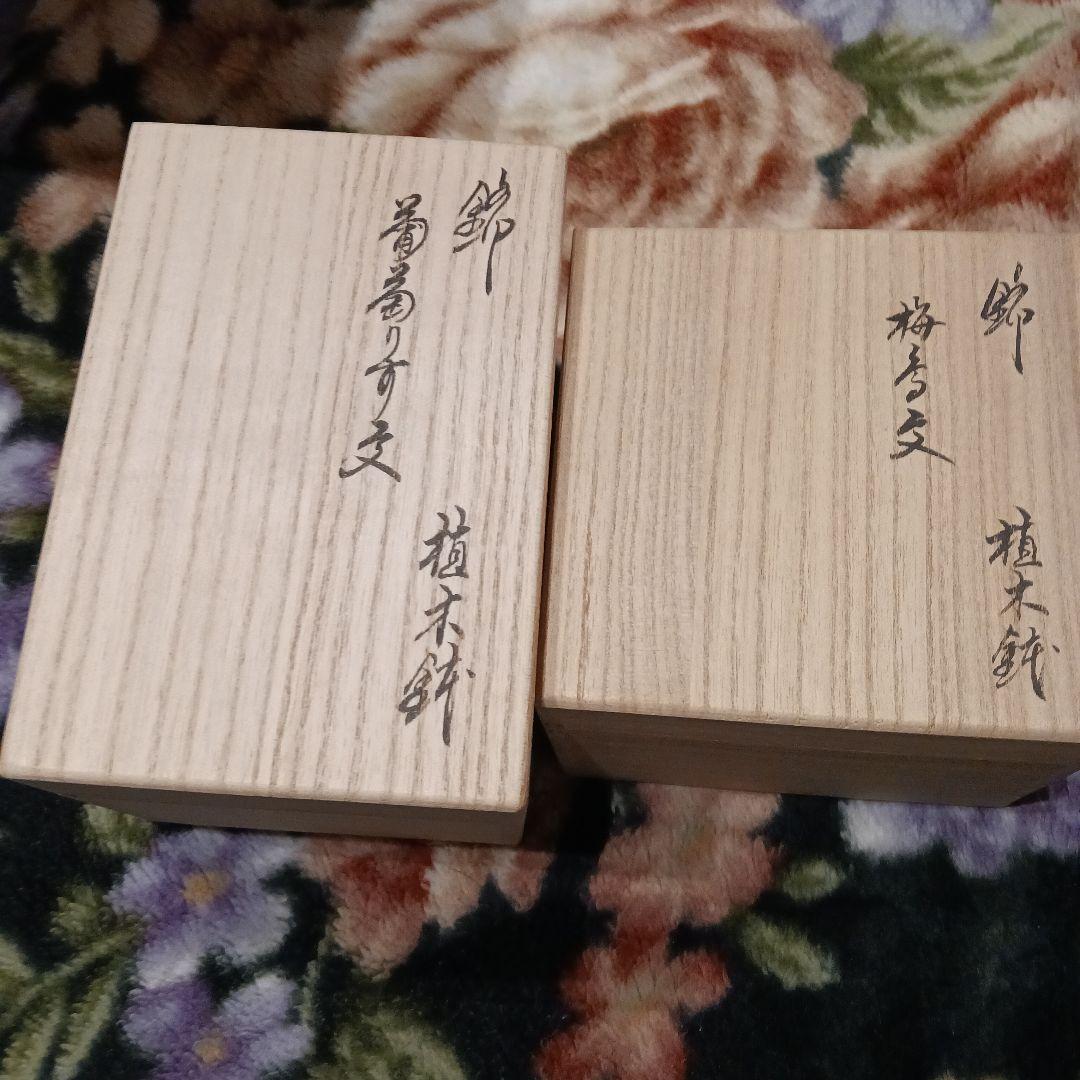 錦
葡萄りす文
植木鉢
錦
梅鳥文
植木鉢